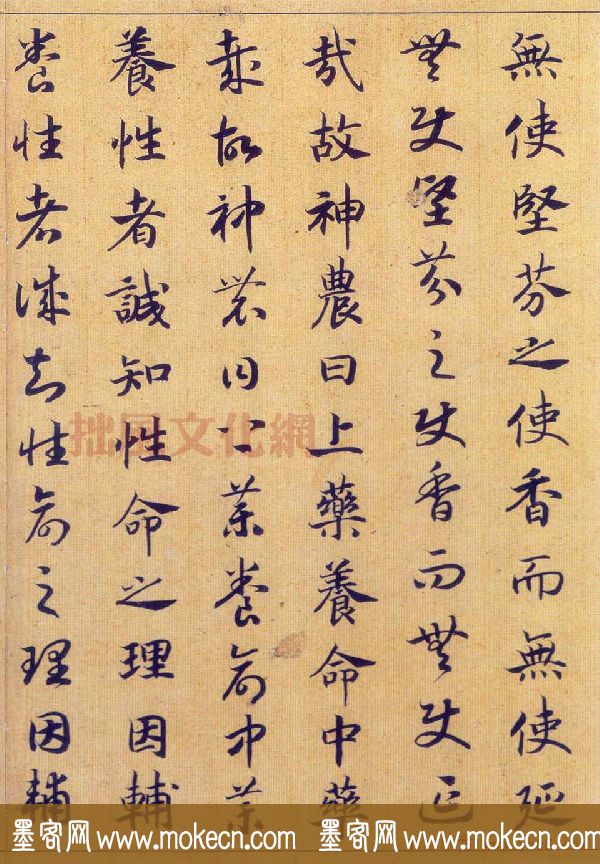 無使堅芬之使香而無使延
無使堅芬之使香而無使延
哉故神農曰上藥養命中藥
哉故神農曰上藥養命中藥
養性者誠知性命之理因輔
養性者誠知性命之理因輔
拙風文化網
墨客网 www.mokecn.com 墨客网 www.mokecn.com